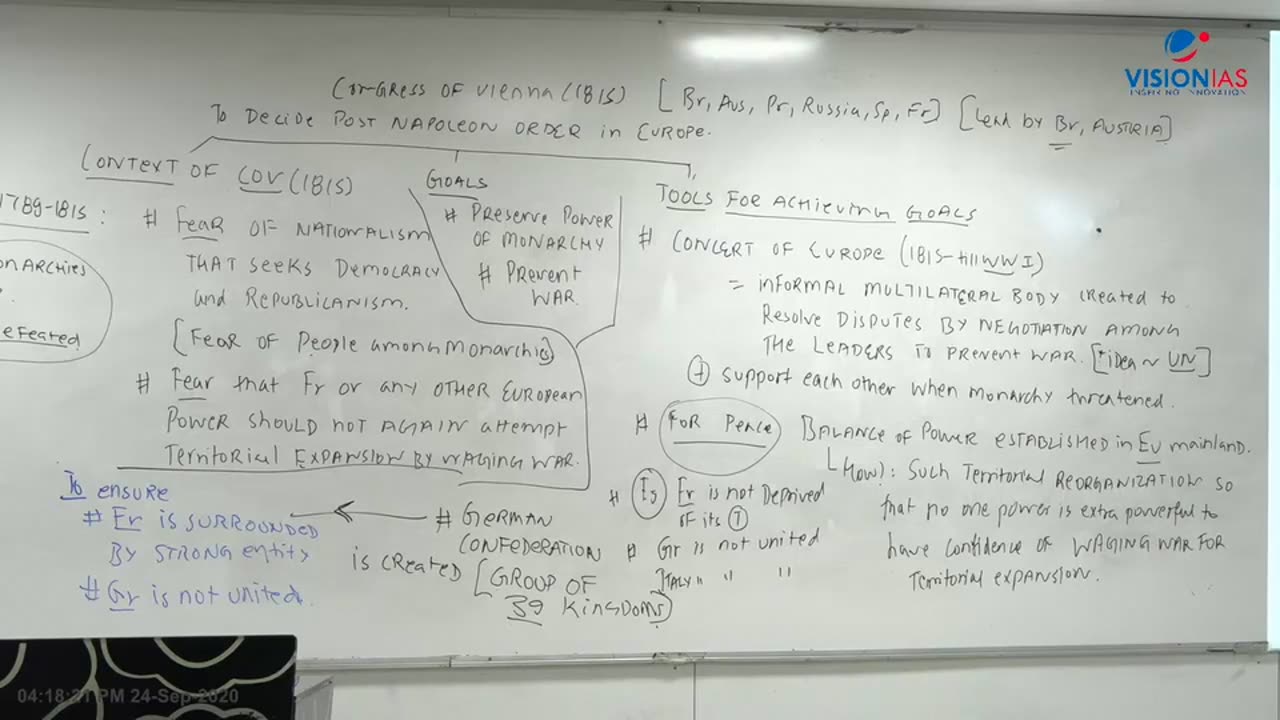 VISIONIAS
INSPIRING INNOVATION
CONGRESS OF Vienna (1815) [Br, Aus, Pr, Russia, Sp, Fr] [Lead by Br, AUSTRIA]
To DECIDE POST NAPOLEON ORDER in EUROPE.
CONTEXT OF COV (1815)
1789-1815 :
ONARCHIES
eFeated
# Fear OF NATIONALISM
THAT Seeks DEMOCRACY
and REPUBLICANISM.
[Fear OF People among Monarchies]
# Fear that Fr or any OTHER EUROPEAN
POWER SHOULD NOT AGAIN attempt
Territorial EXPANSION BY WAGING WAR.
GOALS
# PRESERVE POWER
OF MONARCHY
# PREVENT
WAR.
TOOLS FOR ACHIEVING GOALS
# CONCERT OF EUROPE (1815-till WW I)
= INFORMAL MULTILATERAL BODY CREATED to
RESOLVE DISPUTES BY NEGOTIATION AMONG
THE LEADERS TO PREVENT WAR. [* idea ~ UN]
+ support each other when monarchy threatened.
# FOR Peace BALANCE OF POWER ESTABLISHED in Eu mainland.
(How) : Such Territorial REORGANIZATION SO
that no one power is extra powerful to
have confidence OF WAGING WAR FOR
Territorial expansion.
# Eg Fr is not Deprived
OF its T
# Gr is not united
ITALY " " "
# GERMAN
CONFEDERATION
is created [GROUP OF
39 KINGDOMS]
To ensure
# Fr is SURROUNDED
BY STRONG entity
# Gr is not united.
04:18:21 PM 24-Sep-2020